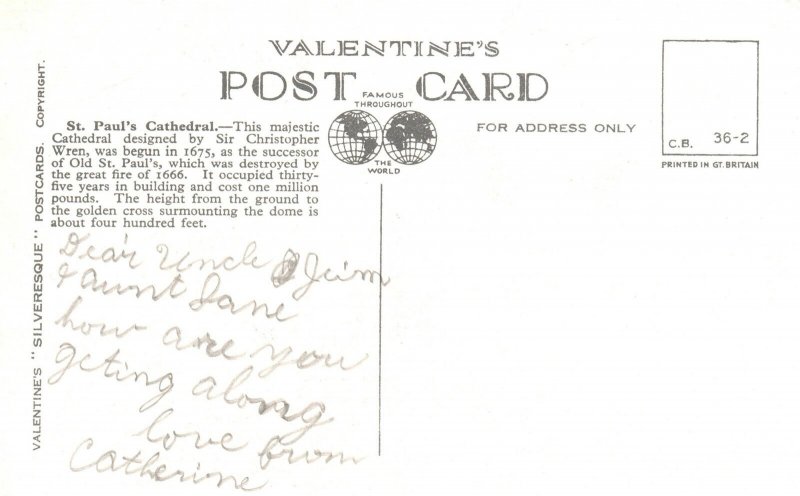 VALENTINE'S
POST CARD
FAMOUS
THROUGHOUT
THE
WORLD
FOR ADDRESS ONLY
C.B. 36-2
PRINTED IN GT. BRITAIN
VALENTINE'S "SILVERESQUE" POSTCARDS. COPYRIGHT.
St. Paul's Cathedral.—This majestic
Cathedral designed by Sir Christopher
Wren, was begun in 1675, as the successor
of Old St. Paul's, which was destroyed by
the great fire of 1666. It occupied thirty-
five years in building and cost one million
pounds. The height from the ground to
the golden cross surmounting the dome is
about four hundred feet.
Dear Uncle Jim
& aunt Jane
how are you
geting along
love from
Catherine